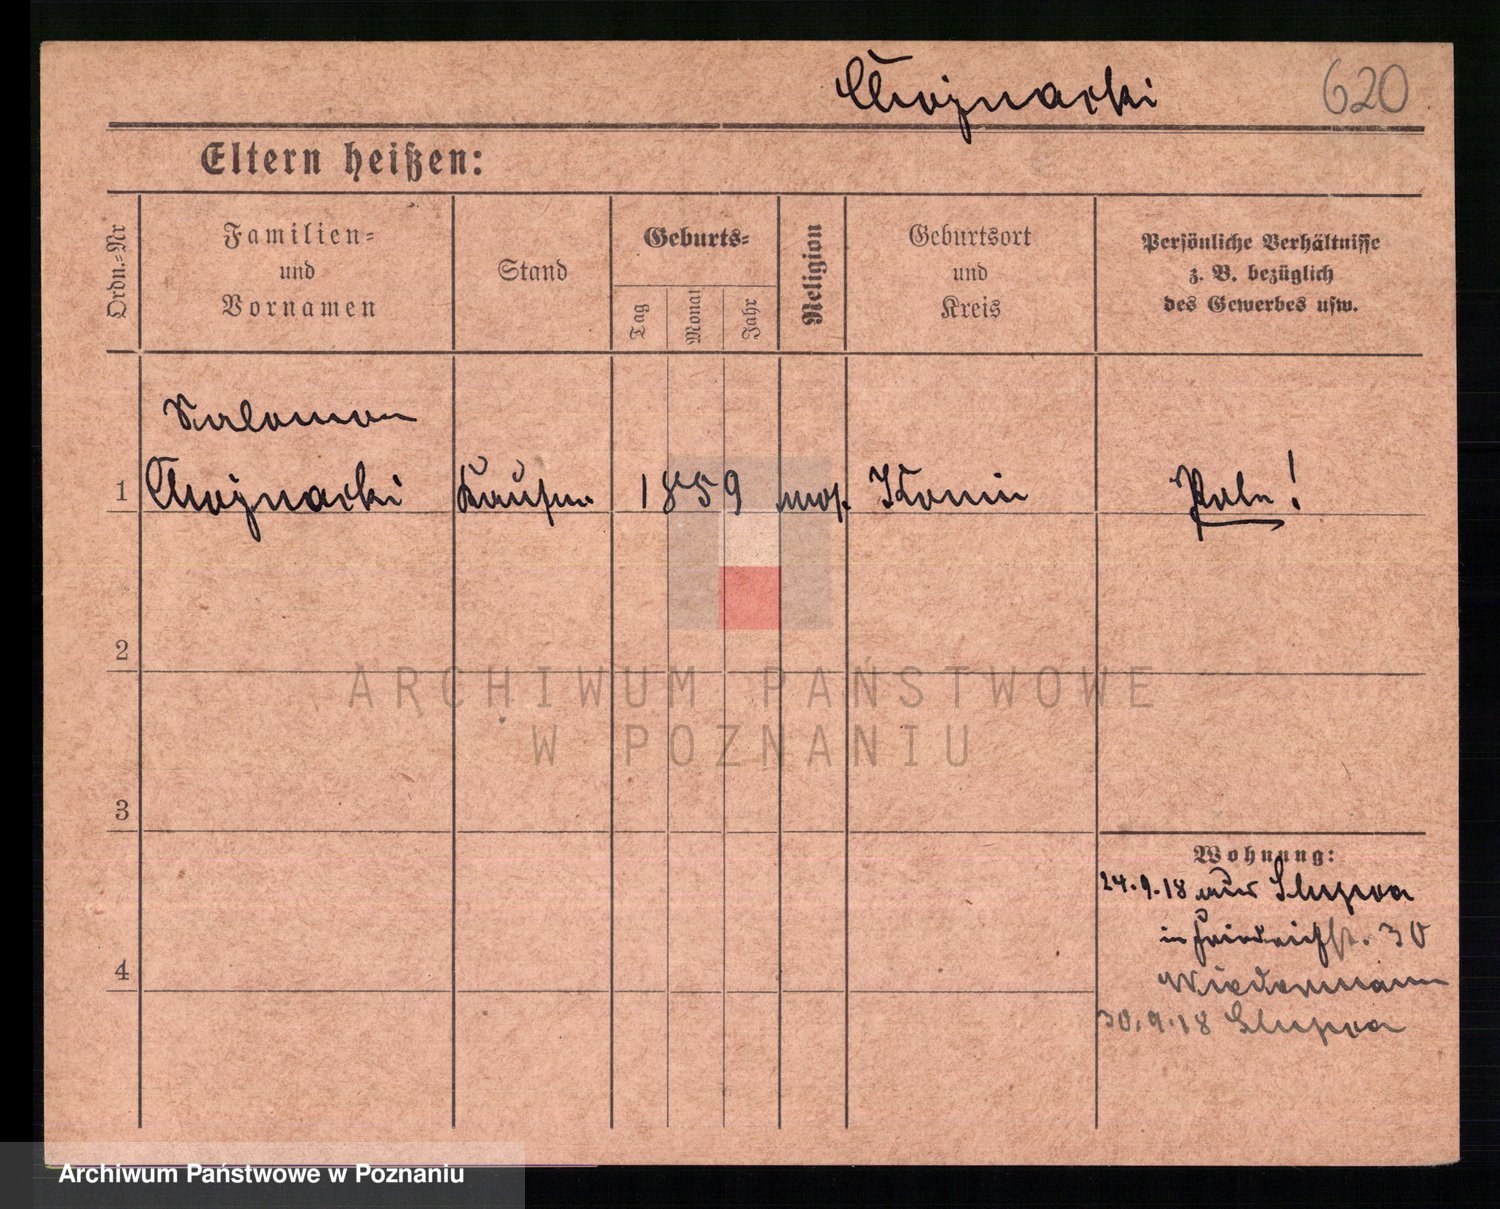 Chojnacki 620
Eltern heißen:
Ordn.-Nr
Familien-
und
Vornamen
Stand
Geburts-
Tag
Monat
Jahr
Religion
Geburtsort
und
Kreis
Persönliche Verhältnisse
z. B. bezüglich
des Gewerbes usw.
Salomon
1 Chojnacki Kaufm. 1859 mos. Konin Pole!
2
ARCHIWUM PAŃSTWOWE
W POZNANIU
3
Wohnung:
24.9.18 aus Slupca
in Friedrichst. 30
4
Wiedermann
30.9.18 Slupca
Archiwum Państwowe w Poznaniu